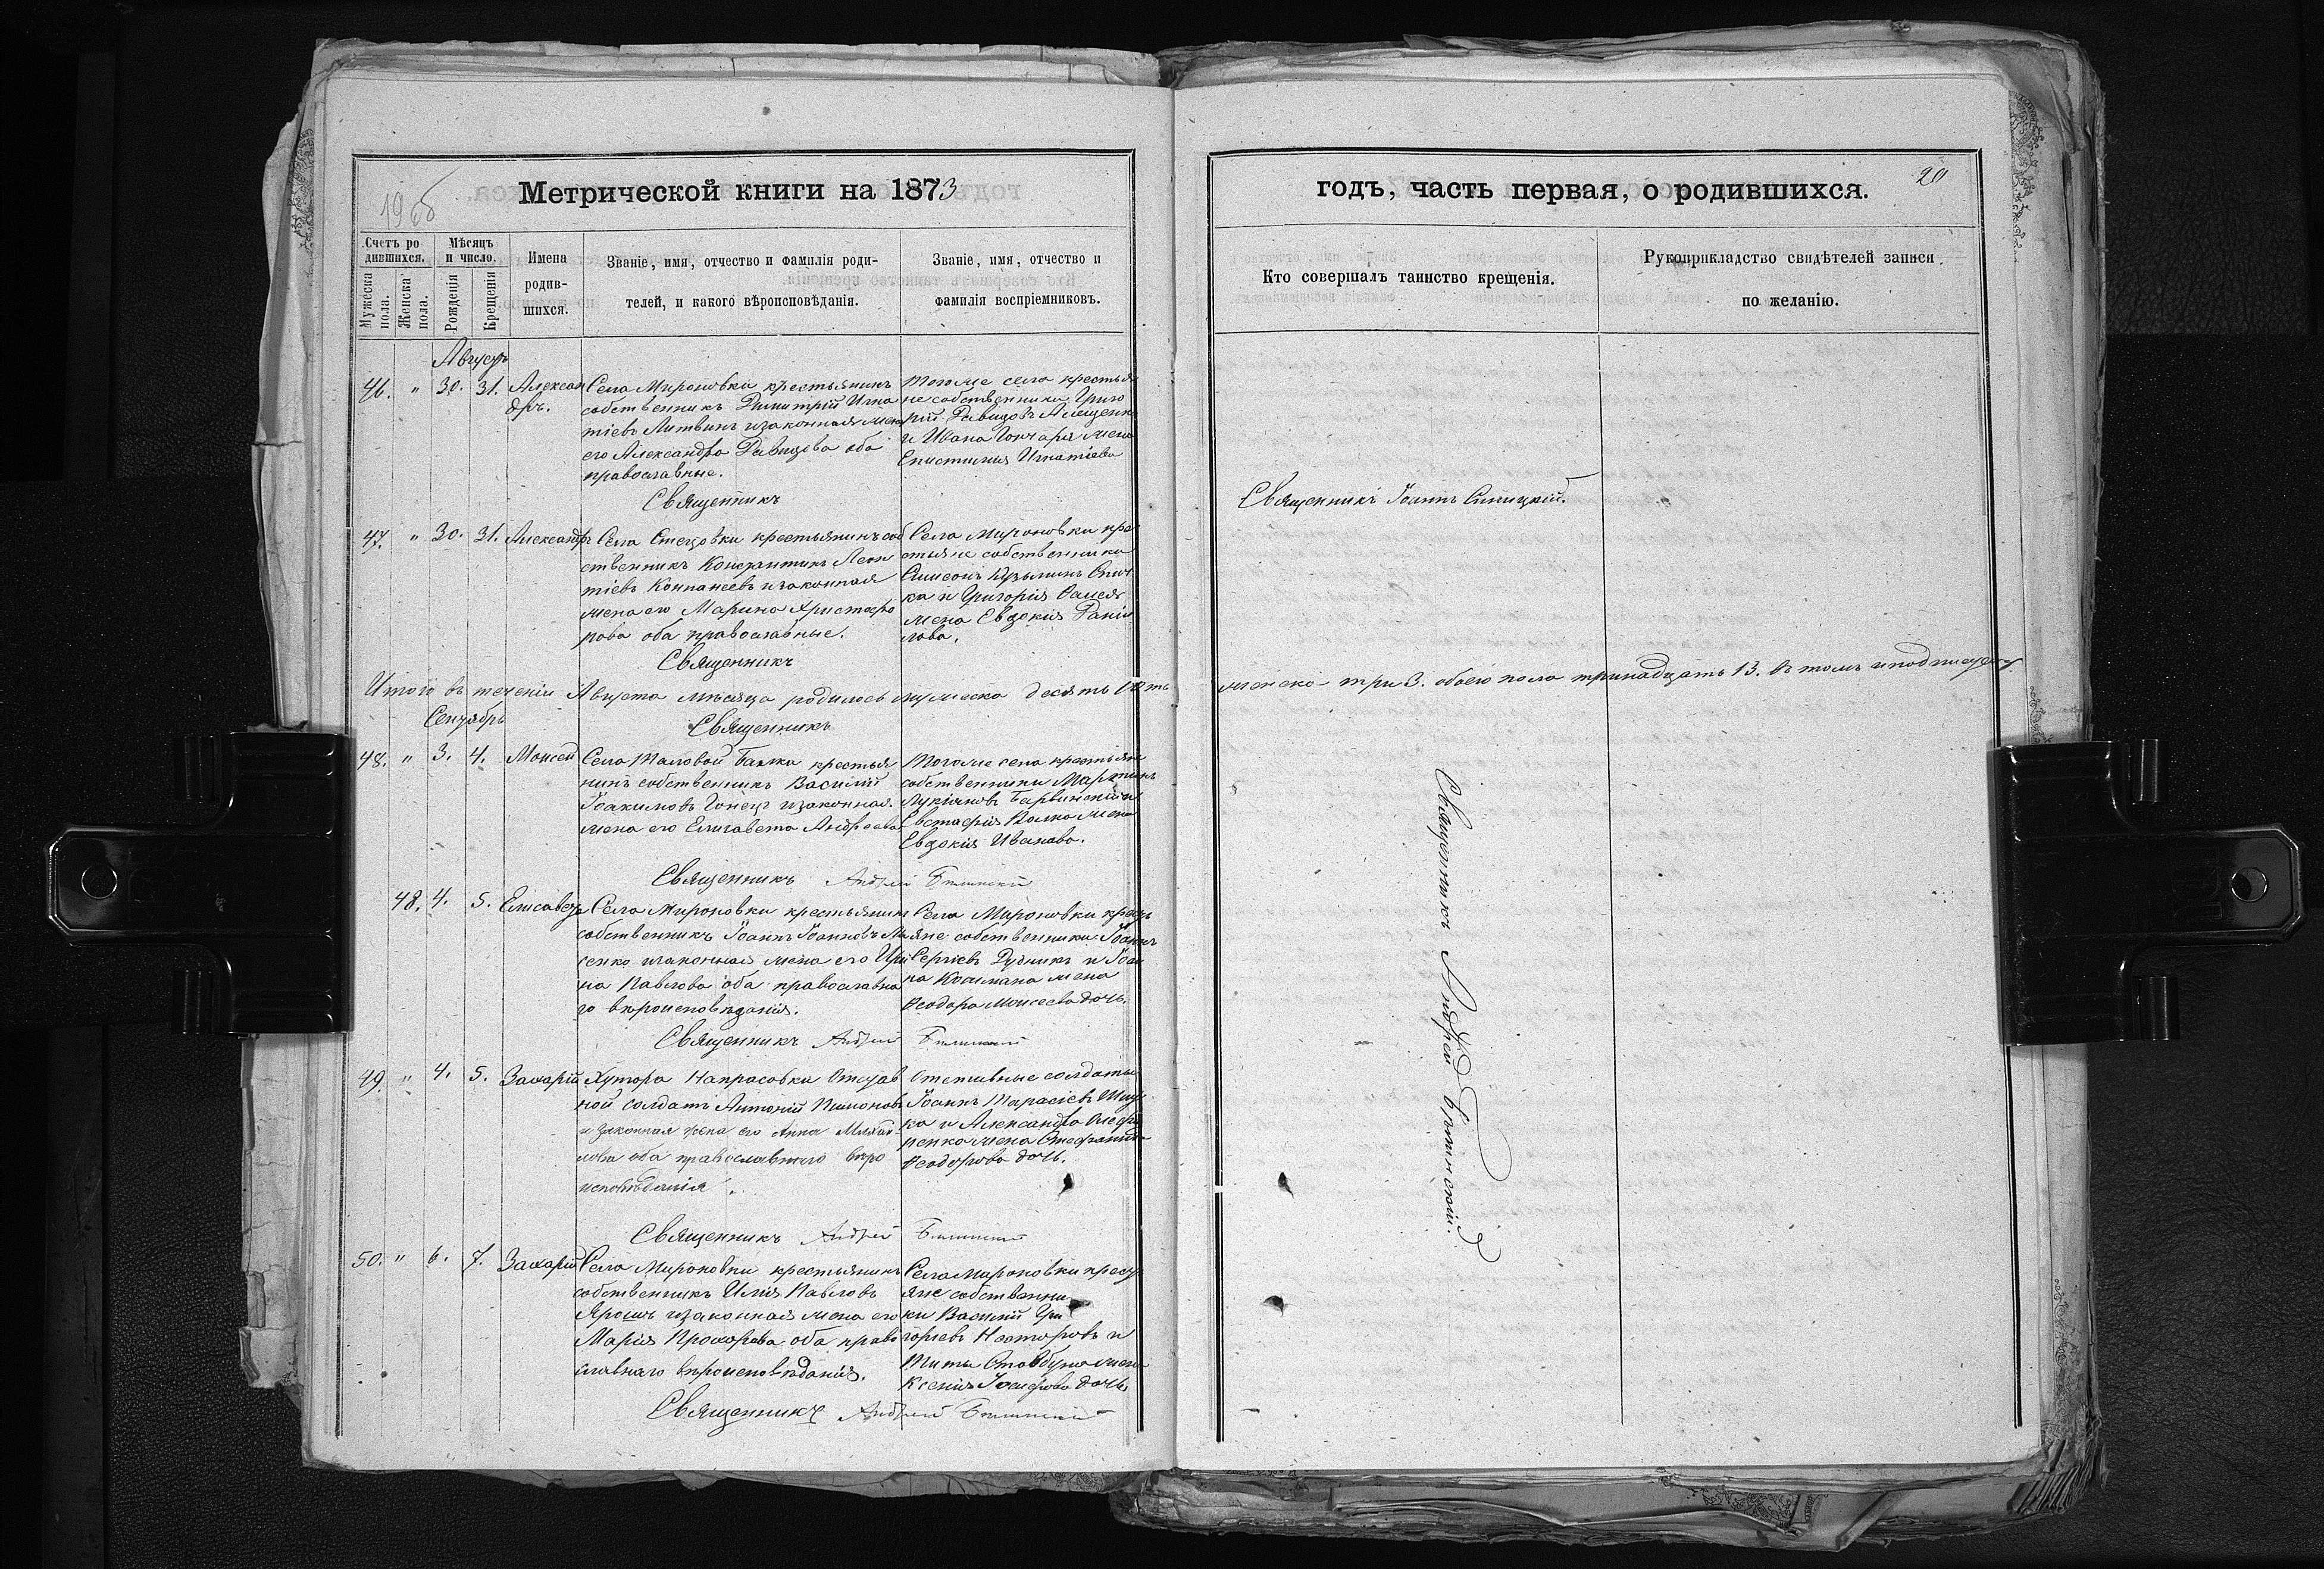 Метрической книги на 1873
годъ, часть первая, о родившихся.
20
Счетъ родившихся.
Мѣсяцъ и число.
Имена родившихся.
Званіе, имя, отчество и фамилія родителей, и какого вѣроисповѣданія.
Званіе, имя, отчество и фамилія воспріемниковъ.
Мужеска пола.
Женска пола.
Рожденія
Крещенія
Кто совершалъ таинство крещенія.
Рукоприкладство свидѣтелей записи по желанію.
Августъ
46. " 30. 31. Александръ.
Села Мироновки крестьянинъ
собственникъ Димитрій Игна
тіевъ Литвинъ и законная жена
его Александра Давидова оба
православные.
Тогоже села крестья
не собственники Григо
рій Давидовъ
и Ивана Гончара жена
Епистимія Игнатіева
Священникъ
Священникъ Іоаннъ Синицкій.
47. " 30. 31. Александръ
Села Стецовки крестьянинъ соб
ственникъ Константинъ Леон
тіевъ Компанеевъ и законная
жена его Марина Христофо
рова оба православные.
Села Мироновки кре
стьяне собственники
Симеонъ
ка и Григорія
жена Евдокія Даніи
лова.
Священникъ
Итого въ теченіи Августа мѣсяца родилось мужеска десять
женска три 3. обоего пола тринадцать 13. въ томъ и подписуемся
Сентябрь
Священникъ
48. " 3. 4. Моисей
Села Таловой Балки крестья
нинъ собственникъ Василій
Іоакимовъ Гонецъ и законная
жена его Елисавета Андреева
Тогоже села крестьяне
собственники Мартинъ
Лукіановъ
Евстафія жена
Евдокія Иванова.
Священникъ Андрей
48. 4. 5. Елисавета
Села Мироновки крестьянинъ
собственникъ Іоаннъ Іоанновъ
сенко и законная жена его Ири
на Павлова оба православна
го вѣроисповѣданія.
Села Мироновки кресть
яне собственники Іоаннъ
Сергіевъ Дудникъ и Іоан
на жена
Ѳеодора Моисеева дочь.
Священникъ Андрей
49. " 4. 5. Захарій
Хутора Напрасовки Отстав
ной солдатъ Антоній
и законная жена его Анна Михаи
лова оба православнаго вѣро
исповѣданія.
Отставные солдаты
Іоаннъ Тарасіевъ
ка и Александра
ренко жена Стефанида
Ѳеодорова дочь.
Священникъ Андрей
50. " 6. 7. Захарій
Села Мироновки крестьянинъ
собственникъ Илія Павловъ
Ярошъ и законная жена его
Марія Прохорова оба право
славнаго вѣроисповѣданія.
Села Мироновки кресть
яне собственни
ки Василій Гри
горіевъ Несторовъ и
Тита жена
Ксенія Іосифова дочь.
Священникъ Андрей
Священникъ Андрей